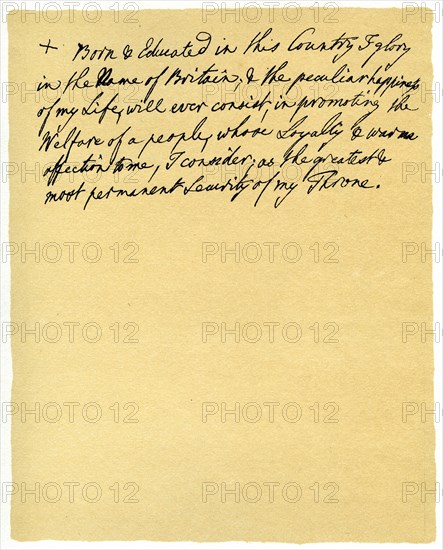 + Born & Educated in this Country I glory
in the Name of Britain, & the peculiar happiness
of my Life, will ever consist, in promoting the
Welfare of a people, whose Loyalty & warm
affection to me, I consider, as the greatest &
most permanent Security of my Throne.
PHOTO 12 PHOTO 12 PHOTO 12
PHOTO 12 PHOTO 12 PHOTO 12
PHOTO 12 PHOTO 12 PHOTO 12
PHOTO 12 PHOTO 12 PHOTO 12
PHOTO 12 PHOTO 12 PHOTO 12
PHOTO 12 PHOTO 12 PHOTO 12
PHOTO 12 PHOTO 12 PHOTO 12